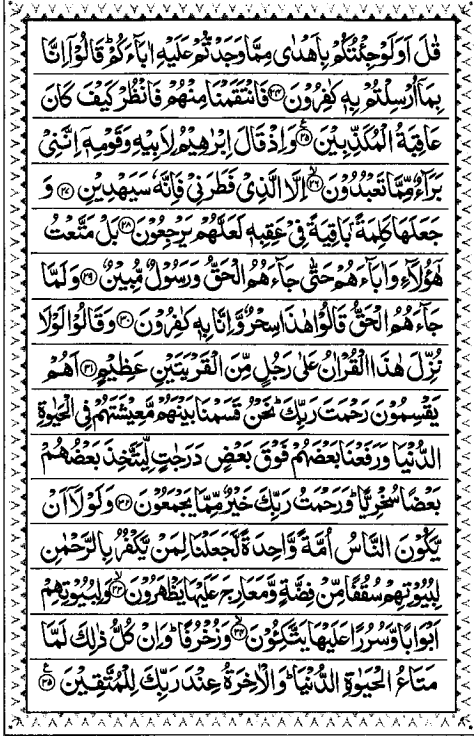 قٰلَ اَوَلَوۡ جِئۡتُكُمۡ بِاَهۡدٰى مِمَّا وَجَدۡتُّمۡ عَلَيۡهِ اٰبَآءَكُمۡؕ قَالُوۡۤا اِنَّا
بِمَاۤ اُرۡسِلۡتُمۡ بِهٖ كٰفِرُوۡنَ ﴿۲۴﴾ فَانْتَقَمۡنَا مِنۡهُمۡ فَانْظُرۡ كَيۡفَ كَانَ
عَاقِبَةُ الۡمُكَذِّبِيۡنَ ﴿۲۵﴾ وَاِذۡ قَالَ اِبۡرٰهِيۡمُ لِاَبِيۡهِ وَقَوۡمِهٖۤ اِنَّنِىۡ
بَرَآءٌ مِّمَّا تَعۡبُدُوۡنَ ﴿۲۶﴾ اِلَّا الَّذِىۡ فَطَرَنِىۡ فَاِنَّهٗ سَيَهۡدِيۡنِ ﴿۲۷﴾ وَ
جَعَلَهَا كَلِمَةًۢ بَاقِيَةً فِىۡ عَقِبِهٖ لَعَلَّهُمۡ يَرۡجِعُوۡنَ ﴿۲۸﴾ بَلۡ مَتَّعۡتُ
هٰٓؤُلَاۤءِ وَاٰبَآءَهُمۡ حَتّٰى جَآءَهُمُ الۡحَقُّ وَرَسُوۡلٌ مُّبِيۡنٌ ﴿۲۹﴾ وَلَمَّا
جَآءَهُمُ الۡحَقُّ قَالُوۡا هٰذَا سِحۡرٌ وَّاِنَّا بِهٖ كٰفِرُوۡنَ ﴿۳۰﴾ وَقَالُوۡا لَوۡلَا
نُزِّلَ هٰذَا الۡقُرۡاٰنُ عَلٰى رَجُلٍ مِّنَ الۡقَرۡيَتَيۡنِ عَظِيۡمٍ ﴿۳۱﴾ اَهُمۡ
يَقۡسِمُوۡنَ رَحۡمَتَ رَبِّكَؕ نَحۡنُ قَسَمۡنَا بَيۡنَهُمۡ مَّعِيۡشَتَهُمۡ فِى الۡحَيٰوةِ
الدُّنۡيَا وَرَفَعۡنَا بَعۡضَهُمۡ فَوۡقَ بَعۡضٍ دَرَجٰتٍ لِّيَتَّخِذَ بَعۡضُهُمۡ
بَعۡضًا سُخۡرِيًّاؕ وَرَحۡمَتُ رَبِّكَ خَيۡرٌ مِّمَّا يَجۡمَعُوۡنَ ﴿۳۲﴾ وَلَوۡلَاۤ اَنۡ
يَّكُوۡنَ النَّاسُ اُمَّةً وَّاحِدَةً لَّجَعَلۡنَا لِمَنۡ يَّكۡفُرُ بِالرَّحۡمٰنِ
لِبُيُوۡتِهِمۡ سُقُفًا مِّنۡ فِضَّةٍ وَّمَعَارِجَ عَلَيۡهَا يَظۡهَرُوۡنَ ﴿۳۳﴾ وَلِبُيُوۡتِهِمۡ
اَبۡوَابًا وَّسُرُرًا عَلَيۡهَا يَتَّكِئُوۡنَ ﴿۳۴﴾ وَزُخۡرُفًاؕ وَاِنۡ كُلُّ ذٰلِكَ لَمَّا
مَتَاعُ الۡحَيٰوةِ الدُّنۡيَاؕ وَالۡاٰخِرَةُ عِنۡدَ رَبِّكَ لِلۡمُتَّقِيۡنَ ﴿۳۵﴾